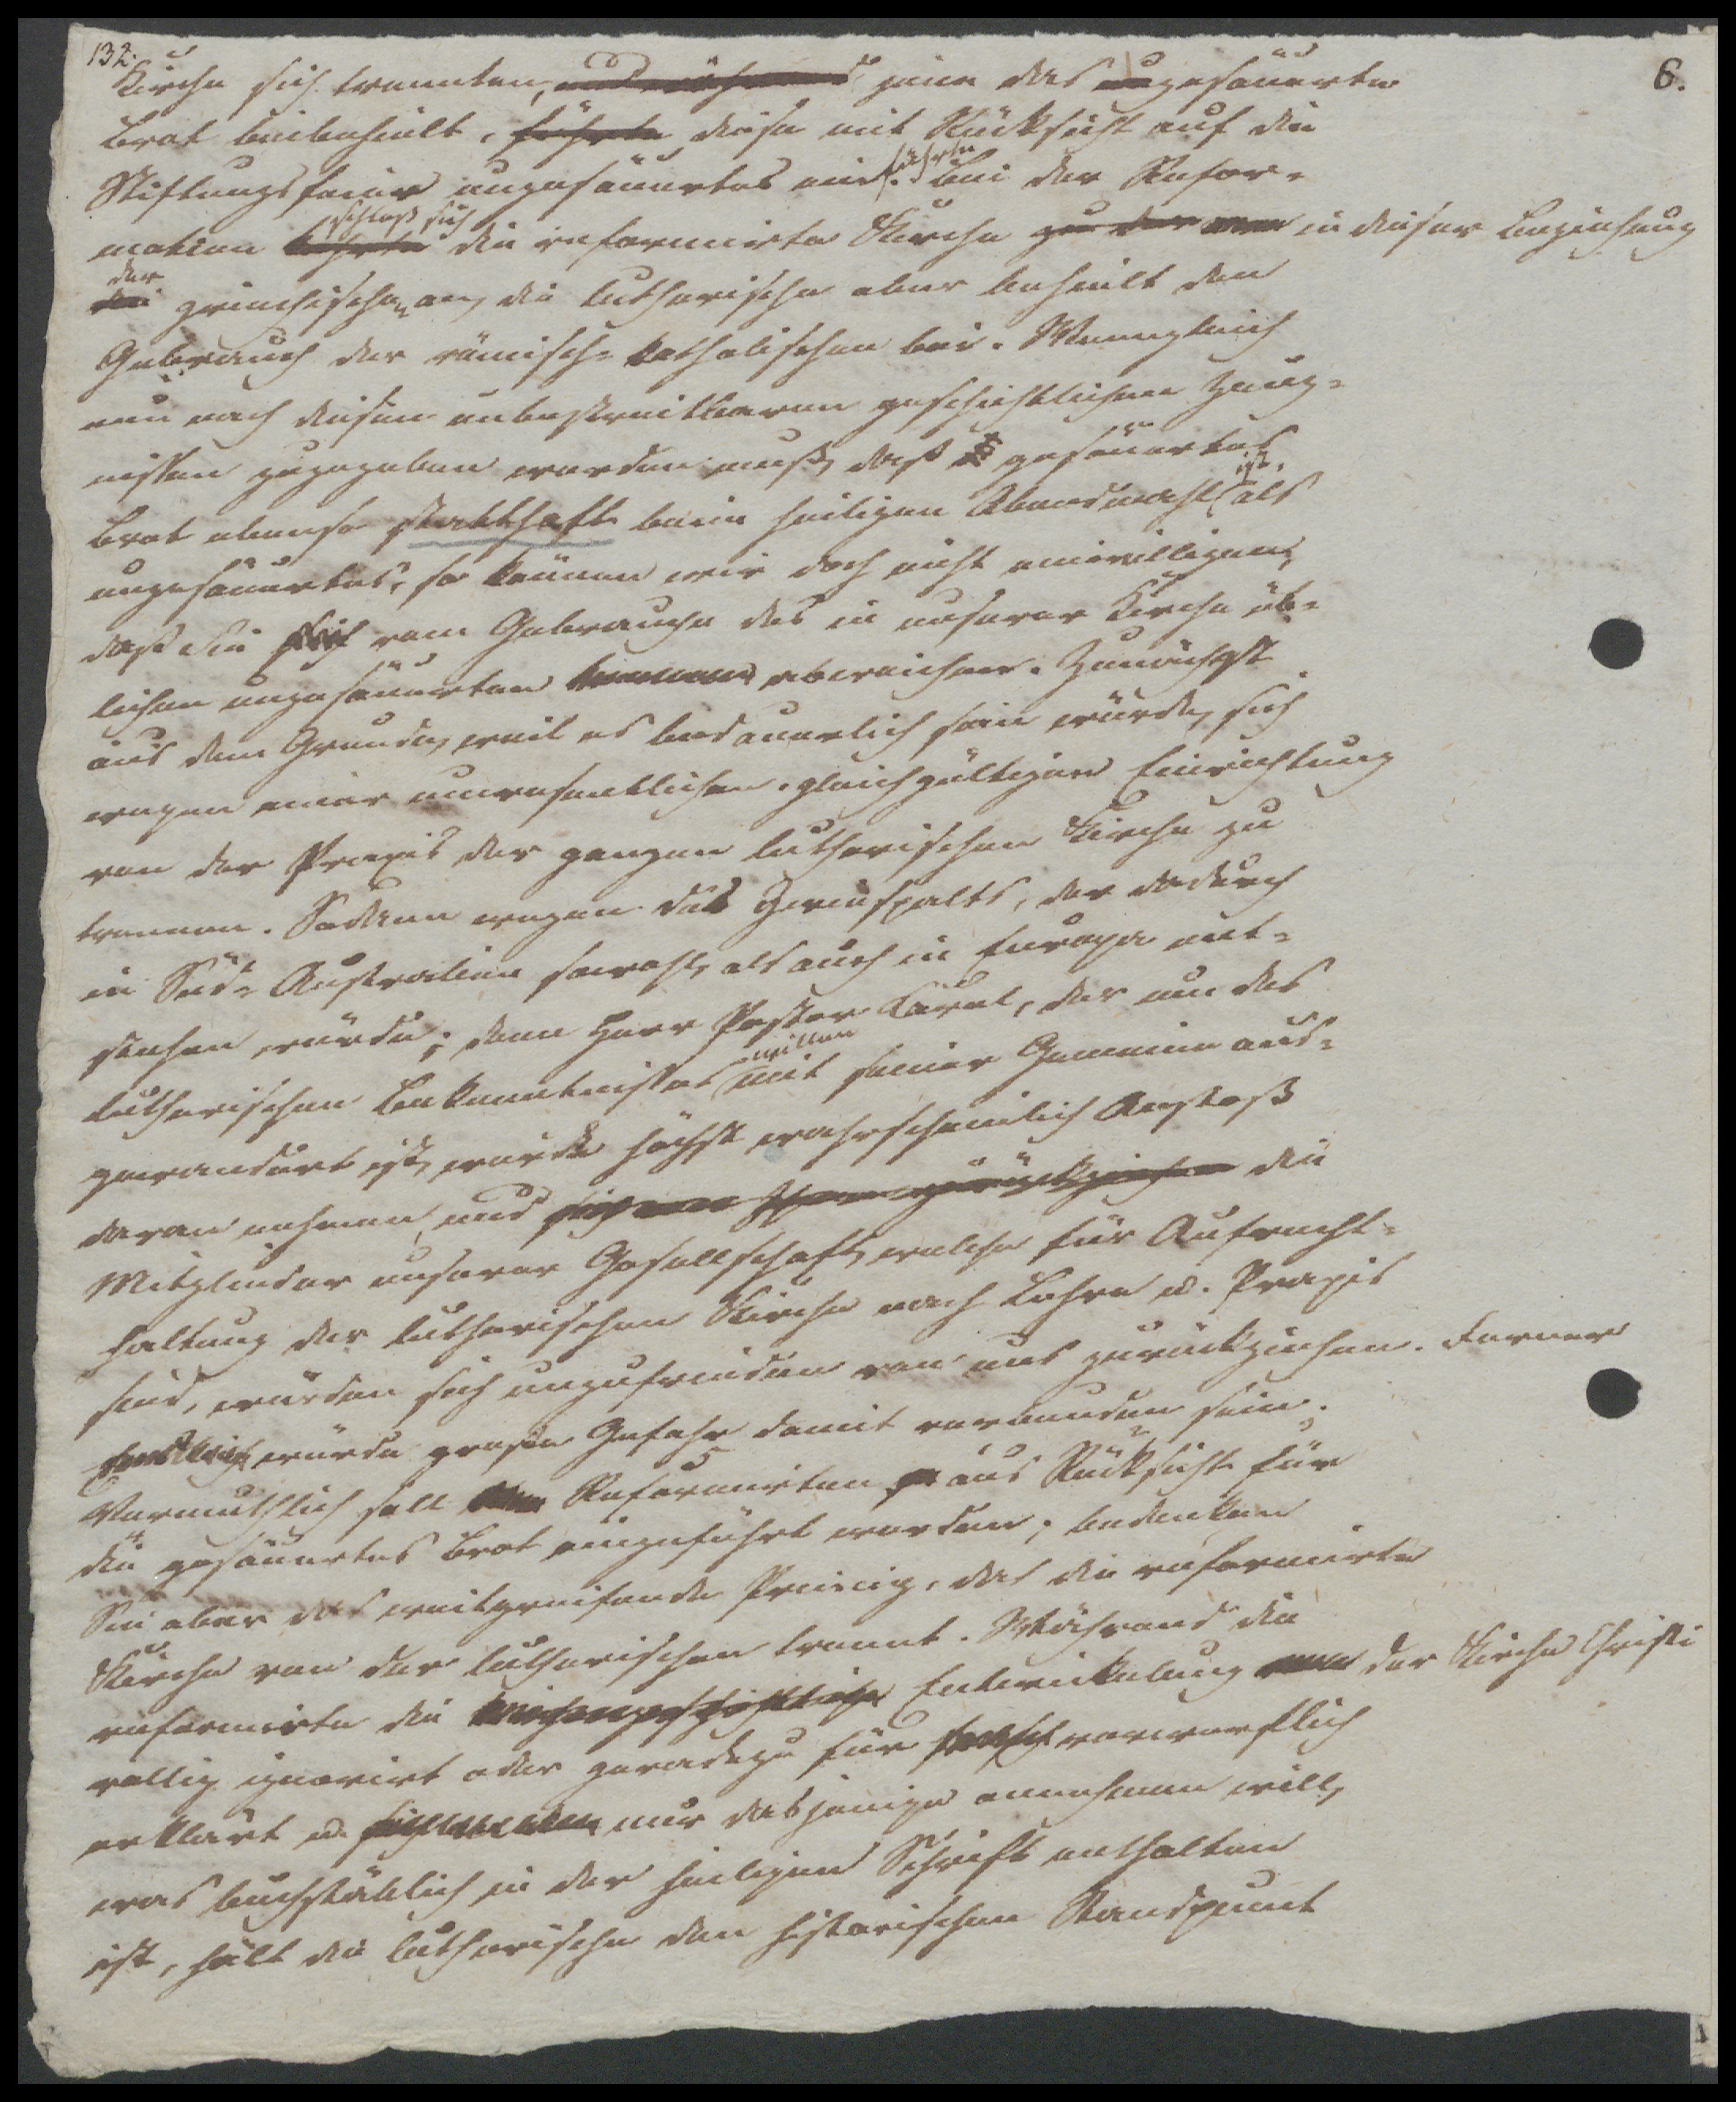 132.
6.
Kirche sich trennten, und während jene das ungesäuerte
Brot beibehielt, führte diese mit Rücksicht auf die
führte
Stiftungsfeier ungesäuertes ein. Bei der Refor-
schloß sich
mation kehrte die reformirte Kirche zu der in dieser Beziehung
der
die griechischen an, die lutherische aber behielt den
Gebrauch der römisch-katholischen bei. Wenngleich
nun nach diesen unbestreitbaren geschichtlichen Zeug-
nissen zugegeben werden muß, daß gesäuertes
ist,
Brot ebenso statthaft beim heiligen Abendmahl als
ungesäuertes, so können wir doch nicht einwilligen,
daß Sie sich vom Gebrauche des in unserer Kirche üb-
lichen ungesäuerten abweichen. Zunächst
aus dem Grunde, weil es bedauerlich sein würde, sich
wegen einer unwesentlichen, gleichgültigen Einrichtung
von der Praxis der ganzen lutherischen Kirche zu
trennen. Sodann wegen des Zwiespalts, der dadurch
in Süd-Australien sowohl, als auch in Europa ent-
stehen würde; denn Herr Pastor Kavel, der um des
willen
lutherischen Bekenntnisses mit seiner Gemeine aus-
gewandert ist, würde höchst wahrscheinlich Anstoß
daran nehmen, und sich von Ihnen zurückziehen die
Mitglieder unserer Gesellschaft, welche für Aufrecht-
haltung der lutherischen Kirche nach Lehre u. Praxis
sind, würden sich unzufrieden von uns zurückziehen. Ferner
Endlich würde große Gefahr damit verbunden sein.
Vermuthlich soll den Reformirten aus Rücksicht für
die gesäuertes Brot eingeführt werden; bedenken
Sie aber das weitgreifende Princip, das die reformirte
Kirche von der lutherischen trennt. Während die
reformirte die kirchengeschichtliche Entwickelung der Kirche Christi
völlig ignorirt oder geradezu für falsch verwerflich
erklärt u. nur dasjenige annehmen will,
was buchstäblich in der heiligen Schrift enthalten
ist, hält die lutherische den historischen Standpunct